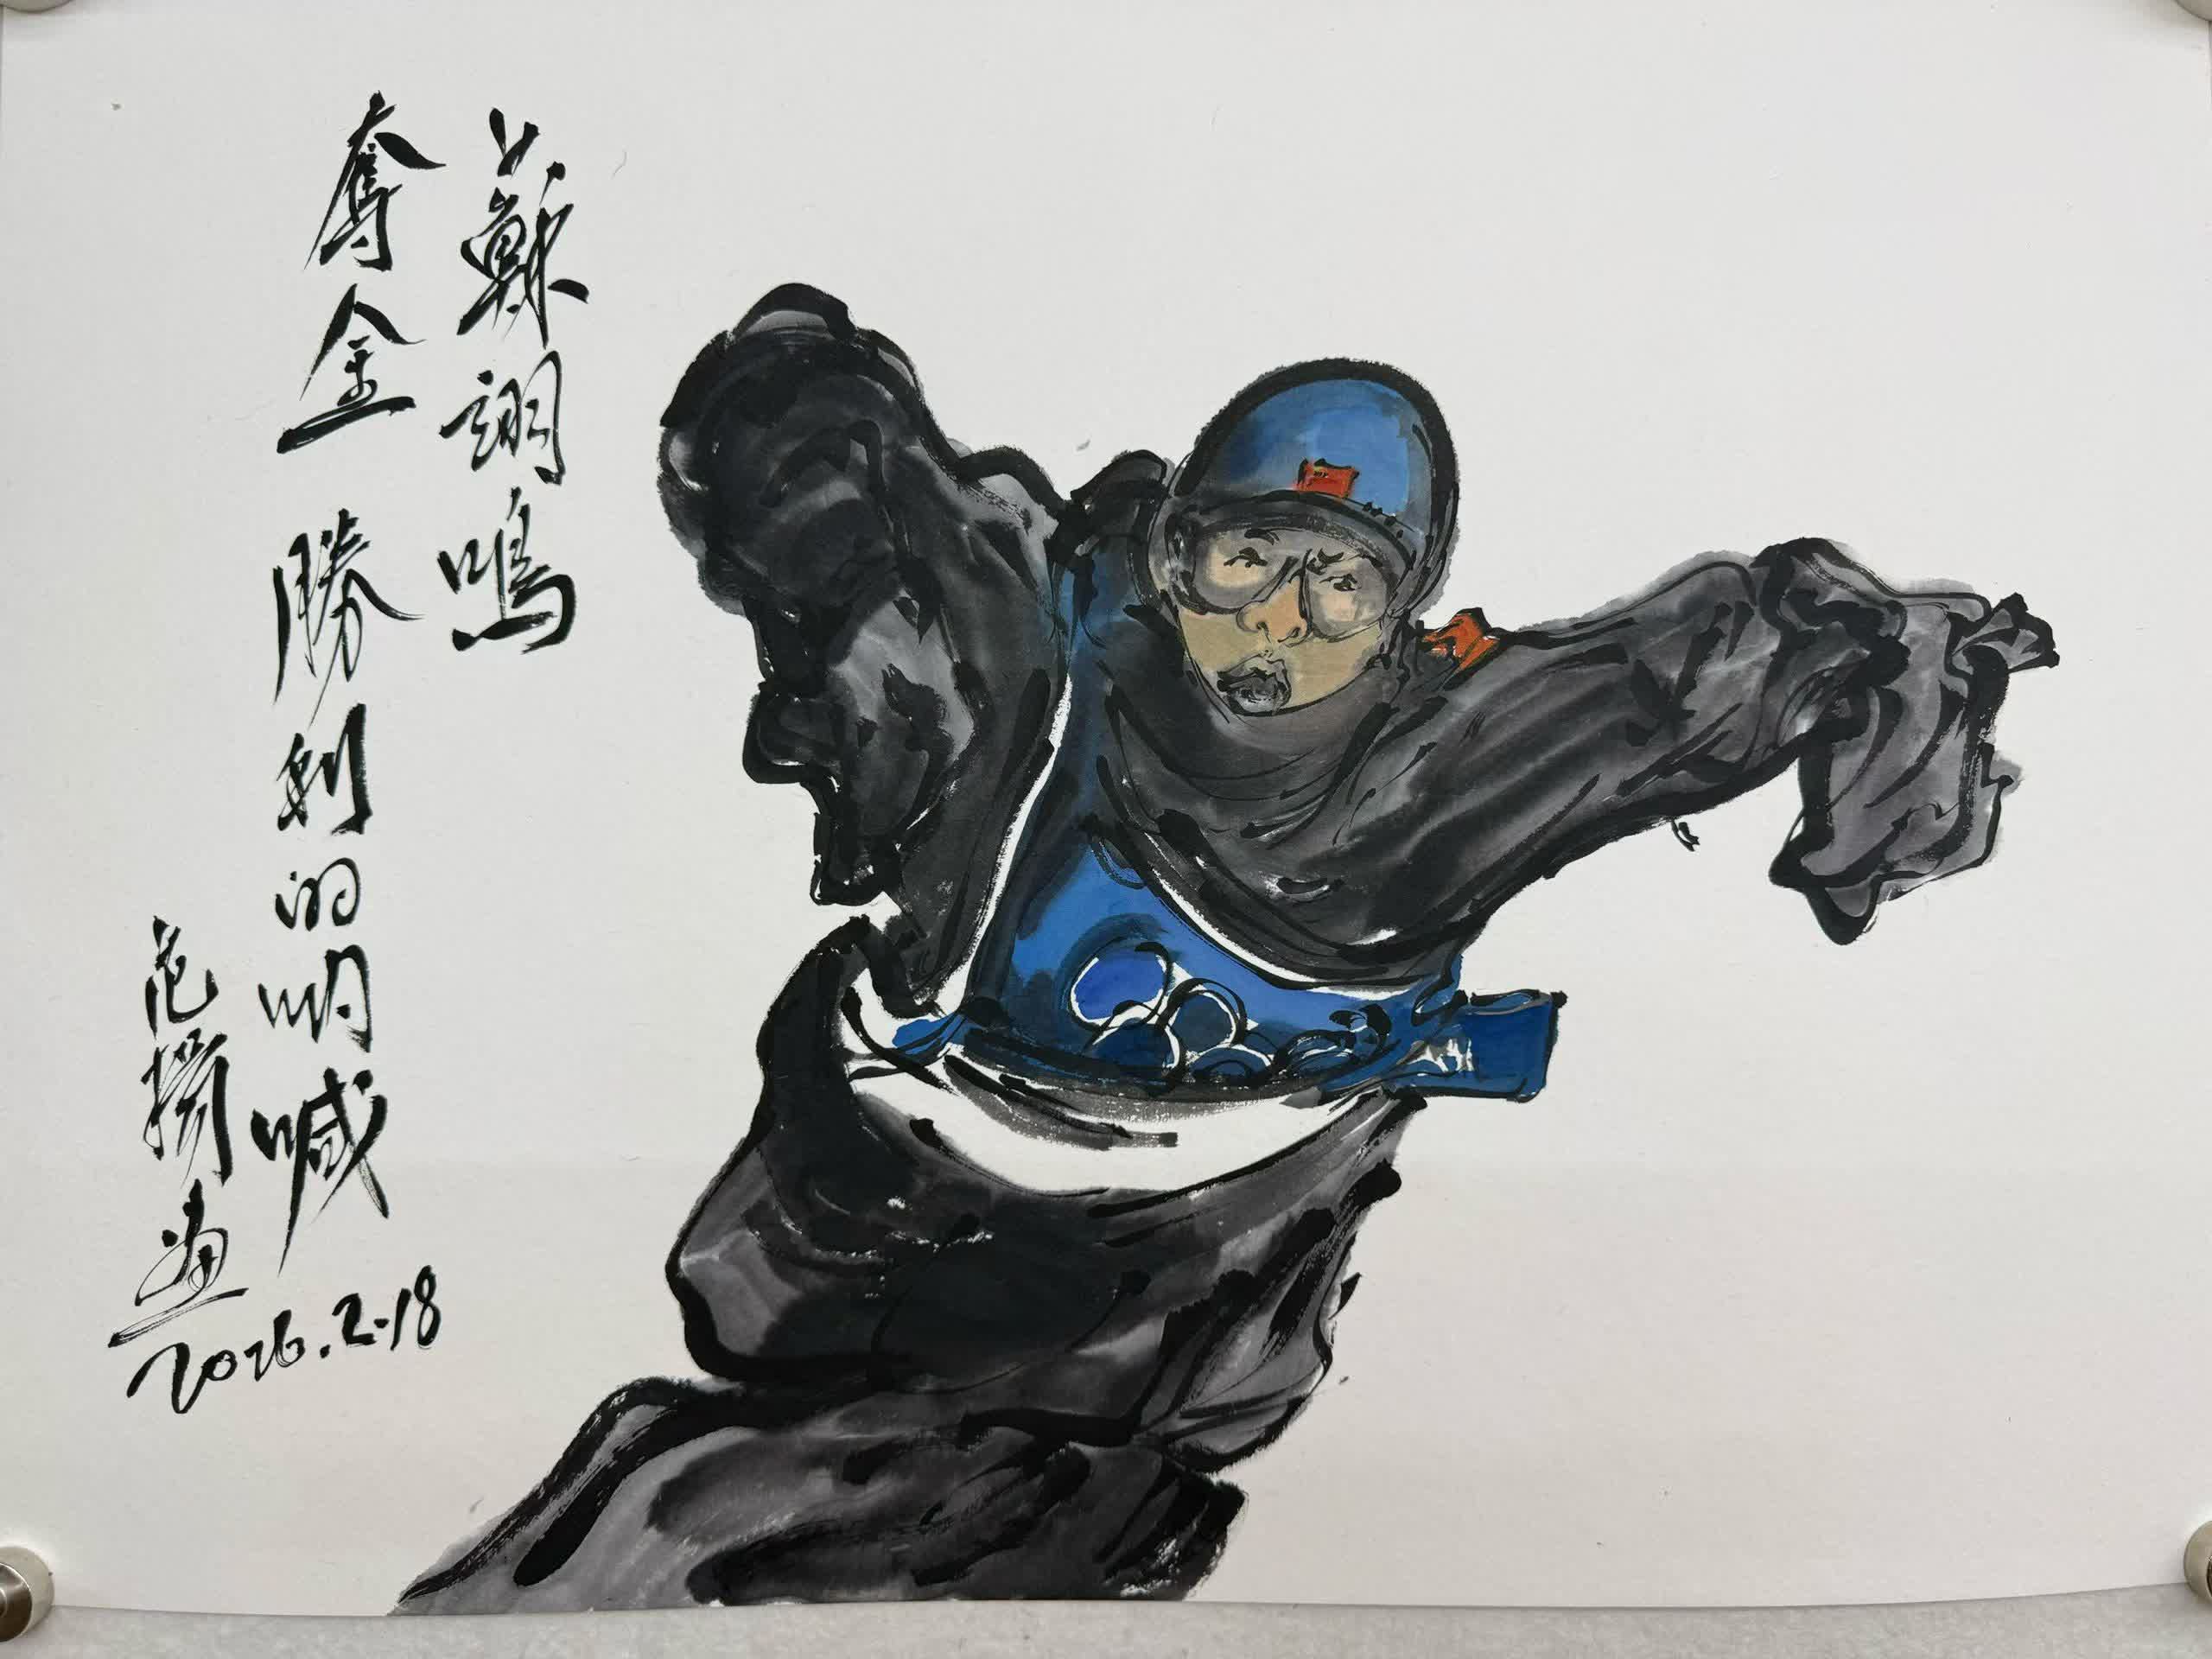 蘇翊鳴
奪金 勝利的吶喊
范揚畫
2026.2-18